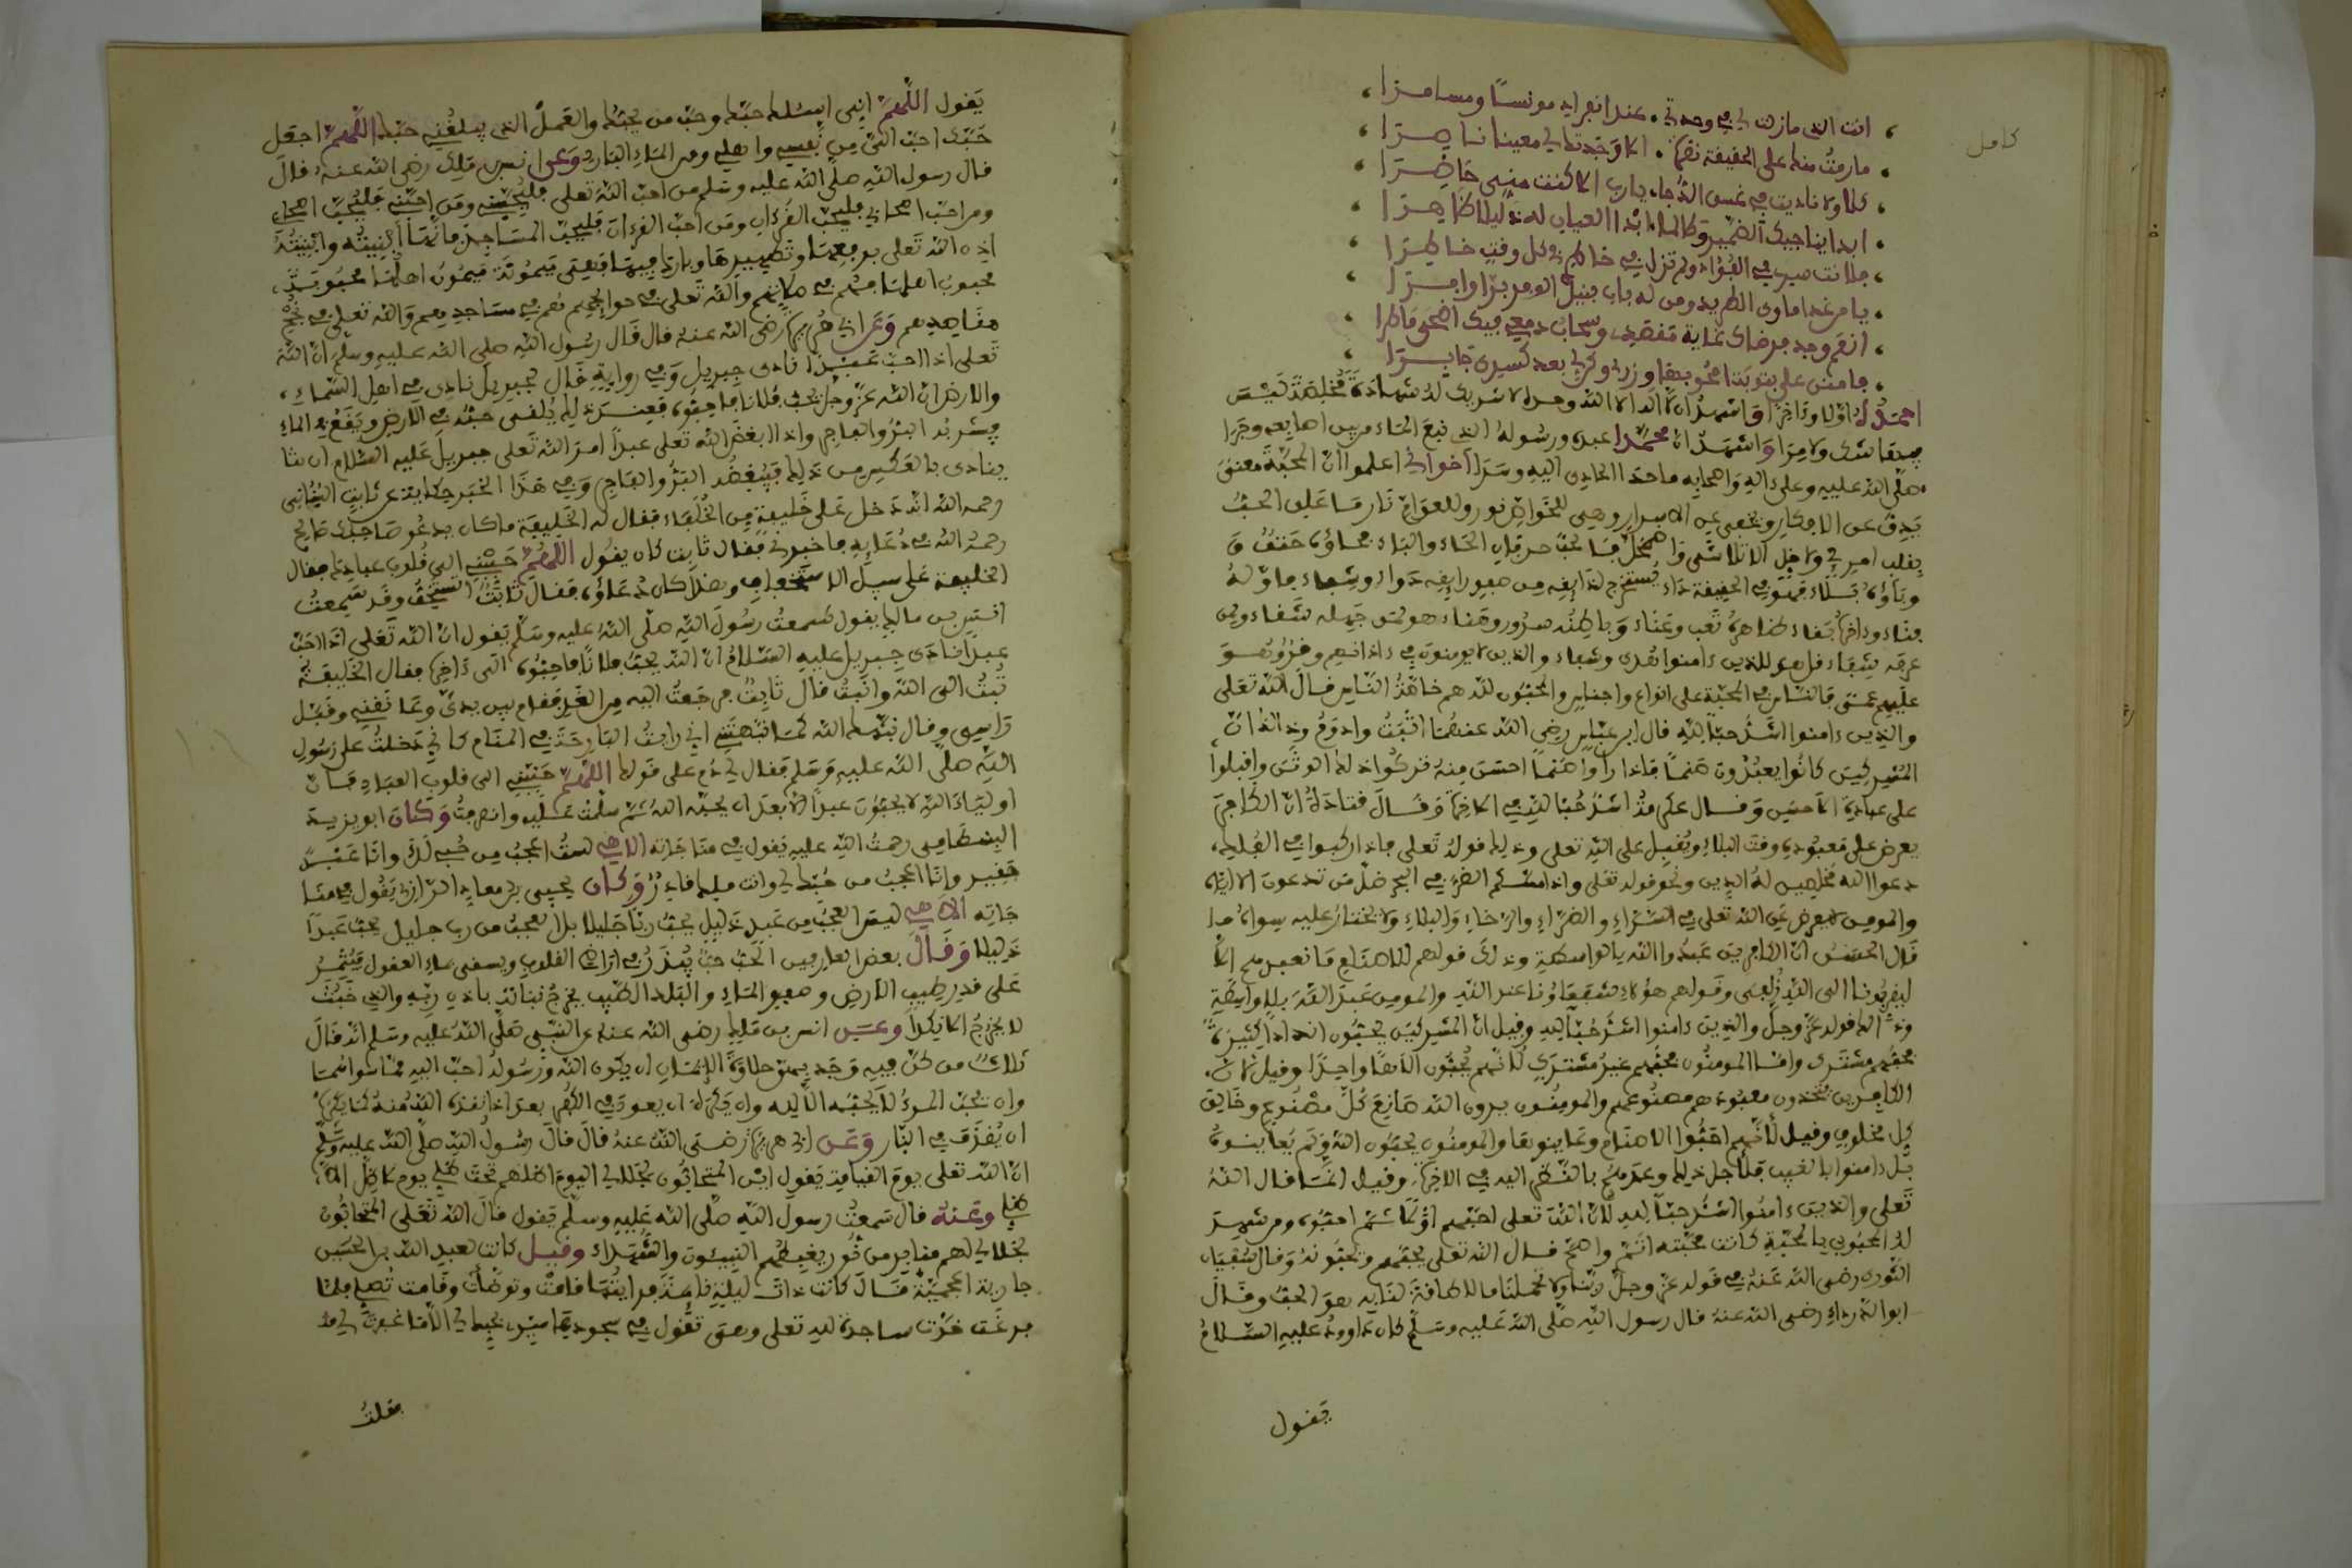 كامل
انت الذي مازلت لي في وحدتي . عند انفرادي مونسًا ومسامرا
مارمتُ منك على الحقيقة نصرة . الا وجدتك لي معينا ناصرا
كلا ولا ناديت في غسق الدُّجا . يا رب الا كنت مني حاضرا
ابدا يناجيك الضمير وكلما . ابدا العيان له دليلا ظاهرا
فلانت سري في الفؤاد ولم تزل . في خاطري في كل وقت خاطرا
يا من غدا ماوى الطريد ومن له باب ينيل الوفر برا وافرا
انعم وجد برضاك غاية مقصدي وسحاب دمعي فيك اضحى ماطرا
فامنن علي بتوبة امحو بها وزري وكن لي بعد كسري جابرا
احمدُ لهُ اوّلا وءَاخِرًا وَاشهدُ ان لَّا اله الا الله وحده لا شريك لهُ شهادةً مُخلِصَةً ليس
فيها شك ولا مِرَا وَاشهَدُ ان محمّدا عبده ورسوله الذي نبع المَاء من بين اصابعه وجرا
صلى الله عليه وعلى اله وَاصحابِه ما حدا الحادي اليه وسَرَا اخواني اعلموا انّ المحبّةَ معنىً
يَدِقُّ عن الافكارِ ويخفى عن الاسرار وهي للخواصِ نور وللعوامّ نار مَا علق الحبُّ
بقلب امرِئ ولا حل الا تلاشى وَاضمحل فالحبّ حرفان الحاء والباء فحاؤه حتفٌ وَ
وباؤه بَلَاءٌ فهُو في الحقيقة داء يُستخرج لذايقِه من صفو رايقِه دواء وشفاء فاوّلهُ
فناء وءاخره بقاء ظاهره تَعب وعَناء وَباطنُه سرور وهناء هو لمن جهله شقاء ولمن
عرفه شِفاء قل هو للذين ءامنوا هُدى وشفاء والذين لا يومنون في ءاذانهم وقرٌ وهو
عليهم عمىً فالناس في المحبّة على انواع واجناس والمحبّون لله هم خاصّةُ النّاسِ قال الله تعلى
والذين ءامنوا اشدُّ حبّا للهِ قال ابن عبّاس رضي الله عنهما اثبَتُ وادوَمُ وذلك انّ
المُشركين كانُوا يعبُدُون صَنمًا فاذا راوا صَنمًا احسَن مِنهُ تركُوا ذلك الوثن واقبلوا
على عبادة الاحسن وقال عكرمةُ اشدُّ حُبّا للهِ في الاخرة وَقَالَ قتادةُ انّ الكافر
يعرض على معبُوده وقت البلاءِ ويُقبل على اللهِ تعلى وذلك قولهُ تعلى فاذا ركبوا في الفُلك
دعوا الله مُخلصين لهُ الدين ونحو قوله تعلى واذا مسّكم الضُّر في البحر ضلّ من تدعون الا ايّاه
والمومن لا يعرض عنِ الله تعلى في السّرّاءِ والضرّاءِ والرّخاءِ وَالبلاءِ ولا يختار عليه سواه
قَال الحسَنُ انّ الكافرين عَبدُوا الله بالواسطةِ وذلك قولهم للاصنام مَا نعبدهم الّا
ليقرّبُونا الى اللهِ زُلفى وقولهم هؤلاءِ شفعَاؤُنا عند اللهِ والمومن عَبدَ اللهَ بلا واسطةٍ
وذلك قوله عزّ وجلّ والذين ءامنوا اشدُّ حُبّا لله وقيل انّ المُشركين يحبّون اندادا كثيرةً
محبّتهم مشترك وامّا المومنُون محبّتهم غيرُ مشتركٍ لانّهم يُحبّون الٰهًا واحِدًا وقيل لانّ
الكافرين يتخذون معبُودهم مصنُوعهم والمومنُون يرون الله صَانعَ كلّ مصنُوع وخالق
كل مخلوق وقيل لانّهم احَبُّوا الاصنام وعَاينوها والمومنُون يحبّون اللهَ ولَم يُعاينوه
بل ءامنوا بالغيب فلاجل ذلك وعدهم بالنّظر اليه في الاخرة وقيل انّما قال اللهُ
تعلى والذين ءامنوا اشدُّ حبّا لله لأنّ اللهَ تعلى احبّهم اوّلا ثم احبُّوه ومن شهد
لهُ المحبُوبُ بالمحبّة كانت محبّته اتمّ واصحّ قال الله تعلى يُحبّهم ويُحبّونهُ وقال سُفيان
الثّوري رضي الله عَنهُ في قوله عزّ وجلّ ربّنا ولا تحملنا ما لا طاقةَ لنا به هو الحبّ وقال
ابو الدرداءِ رضي الله عنهُ قال رسول اللهِ صلى الله عليه وسلّم كان دَاوودُ عليهِ السّلامُ
يَقول
يَقول اللّٰهمّ اني اسئلك حبّك وحبّ من يحبّك والعَملَ الذي يبلغُنِي حبّك اللّٰهمّ اجعل
حبّك احبّ اليّ من نَفسِي واهلي ومن المَاءِ البَاردِ وعن انس بن ملك رضي الله عنهُ قال
قال رسول اللهِ صلى الله عليه وسلم من احبّ الله تعلى فليُحبّني ومَن احبّني فليُحِبّ اصحابي
ومن احبّ اصحابي فليُحبّ القرءان ومَن احبّ القرءان فليُحبّ المسَاجد فانّها افنيتُه وابنيتُهُ
اذن الله تَعلى برفعِهَا وتطهيرها وبارك فيها فهي مَيمُونَة مَيمُونٌ اهلها محبُوبةٌ
محبوبٌ اهلها فهُم في صلاتهم والله تعلى في حوايجهم هم في مساجدهم وَالله تعلى في نُجحِ
مقاصدهم وَعَن ابي هُريرة رضي الله عنهُ قال قَال رسُول الله صلى الله عليهِ وسلّم ان الله
تعلى اذا احبّ عبدًا نادى جبريل وَفي روايةٍ قَال لجبريل نادي في اهل السّماءِ
والارض ان الله عزّ وجلّ يحبّ فُلانا فاحِبُّوه فعند ذلك يُلقى حبّهُ في الارض ويَقعُ في الماءِ
فيشربُه البَرُّ والفاجر واذا ابغض الله تعلى عبدًا امر الله تعلى جبريل عَليه السّلام ان
ينادي بالعكس من ذلك فيُبغِضُه البَرُّ والفَاجر وَفي هَذا الخَبر حِكاية عن ثابتِ البُنَاني
رحمه الله انّه دَخل عَلى خليفةٍ مِن الخُلفاء فقال له الخَليفَة ماكان يدعُو صَاحبك صالح
رحمهُ الله في دُعَايه فاخبرني فقال ثابت كان يقُول اللّهُمّ حبّبْني الى قُلوب عبادك فقال
الخليفة عَلى سبيل الاستخفاف وهذا كان دُعَاؤُه فقال ثابتٌ اتستخفّ وقد سمِعتُ
انس بن مالك يقول سَمعتُ رسُولَ اللهِ صلى اللهُ عليه وسَلّم يَقول انّ الله تَعلى اذا احبّ
عبدًا نادَى جبريل عليه السّلامُ انّ الله يحبّ فلانًا فاحِبُّوه الى ءاخِره فقال الخليفةُ
تُبتُ الى الله وانَبتُ قال ثَابتٌ فرجَعتُ اليه مِن الغدِ فقام بين يديّ وعَانقني وقبّل
رَاسِي وقال نبّهك الله كما نبّهتَني اني رايتُ البارِحَة في المنام كاني دَخلتُ على رسُولِ
اللهِ صلى الله عليهِ وَسَلم فقال لي دُم على قَولك اللهمّ حبّبني الى قلوب العبادِ فانّ
اوليَاءَ اللهِ لا يحبّون عبدًا الا بعد ان يحبّه اللهُ ثمّ سلّمتُ عَليهِ وانصرفتُ وكَان ابو يزيد
البسطامي رحمتُ الله عليهِ يَقول في مناجَاته الاهي لستُ اعجبُ من حُبّي لَك وانا عَبدٌ
حقِير وانّما اعجبُ من حُبّك لي وانت مليك قادرٌ وَكان يحيى بن معاذٍ الرّازي يَقُول في منا
جاته الاهي ليسَ العجبُ من عَبدٍ ذليلٍ يحبّ ربّا جَليلا بل العجبُ من ربٍ جليل يحبّ عَبدًا
ذليلا وَقَال بعض العارفين الحبّ حَبٌّ يُبذَرُ في اراضي القلوبِ ويسقى بماءِ العقول فيُثمرُ
عَلى قدر طِيب الارضِ وصفو المَاءِ والبَلد الطّيّب يخرجُ نباتهُ باذنِ ربّهِ والذي خبُث
لا يخرجُ الا نكدًا وعن انس بن مَلك رضي الله عنه عن النّبي صلى اللهُ عليه وسلّم انّه قال
ثلاثٌ من كُنّ فيهِ وَجد بهنّ حلاوةَ الايمَان ان يكون الله ورَسُولهُ احبّ اليهِ ممّا سواهمَا
وان يحبّ المرءُ لا يُحبّه الا لله وان يَكرَه ان يعودَ في الكُفر بعد اذ انقذه الله منهُ كما يكرهُ
ان يُقذف في النّار وعَن ابي هريرة رَضي اللهُ عنهُ قال قَالَ رسُولُ اللهِ صلى الله عليه وسَلّم
انّ الله تعلى يوم القيامةِ يَقول اينَ المتحابّون بجلالي اليومَ اظلهم تحتَ ظِلي يوم لا ظِلّ الا
ظلي وعَنهُ قال سَمعتُ رسولَ اللهِ صلى الله عَليه وسلّم يَقول قالَ الله تَعلى المتحابّون
بجلالي لهم منابر من نُور يغبِطُهم النبيّون والشّهَداء وقيل كانت لعبد الله بن الحسين
جارية اعجميّة قَال كانت ذات ليلةٍ نائمةً فرايتُها قامتْ وتوضّأت وقَامت تُصلي فلمّا
فرغت خرّت ساجدة لله تعلى وهي تقُول في سجودها سيدي بحبك لي الا ما غفرتَ لي
فقلتُ